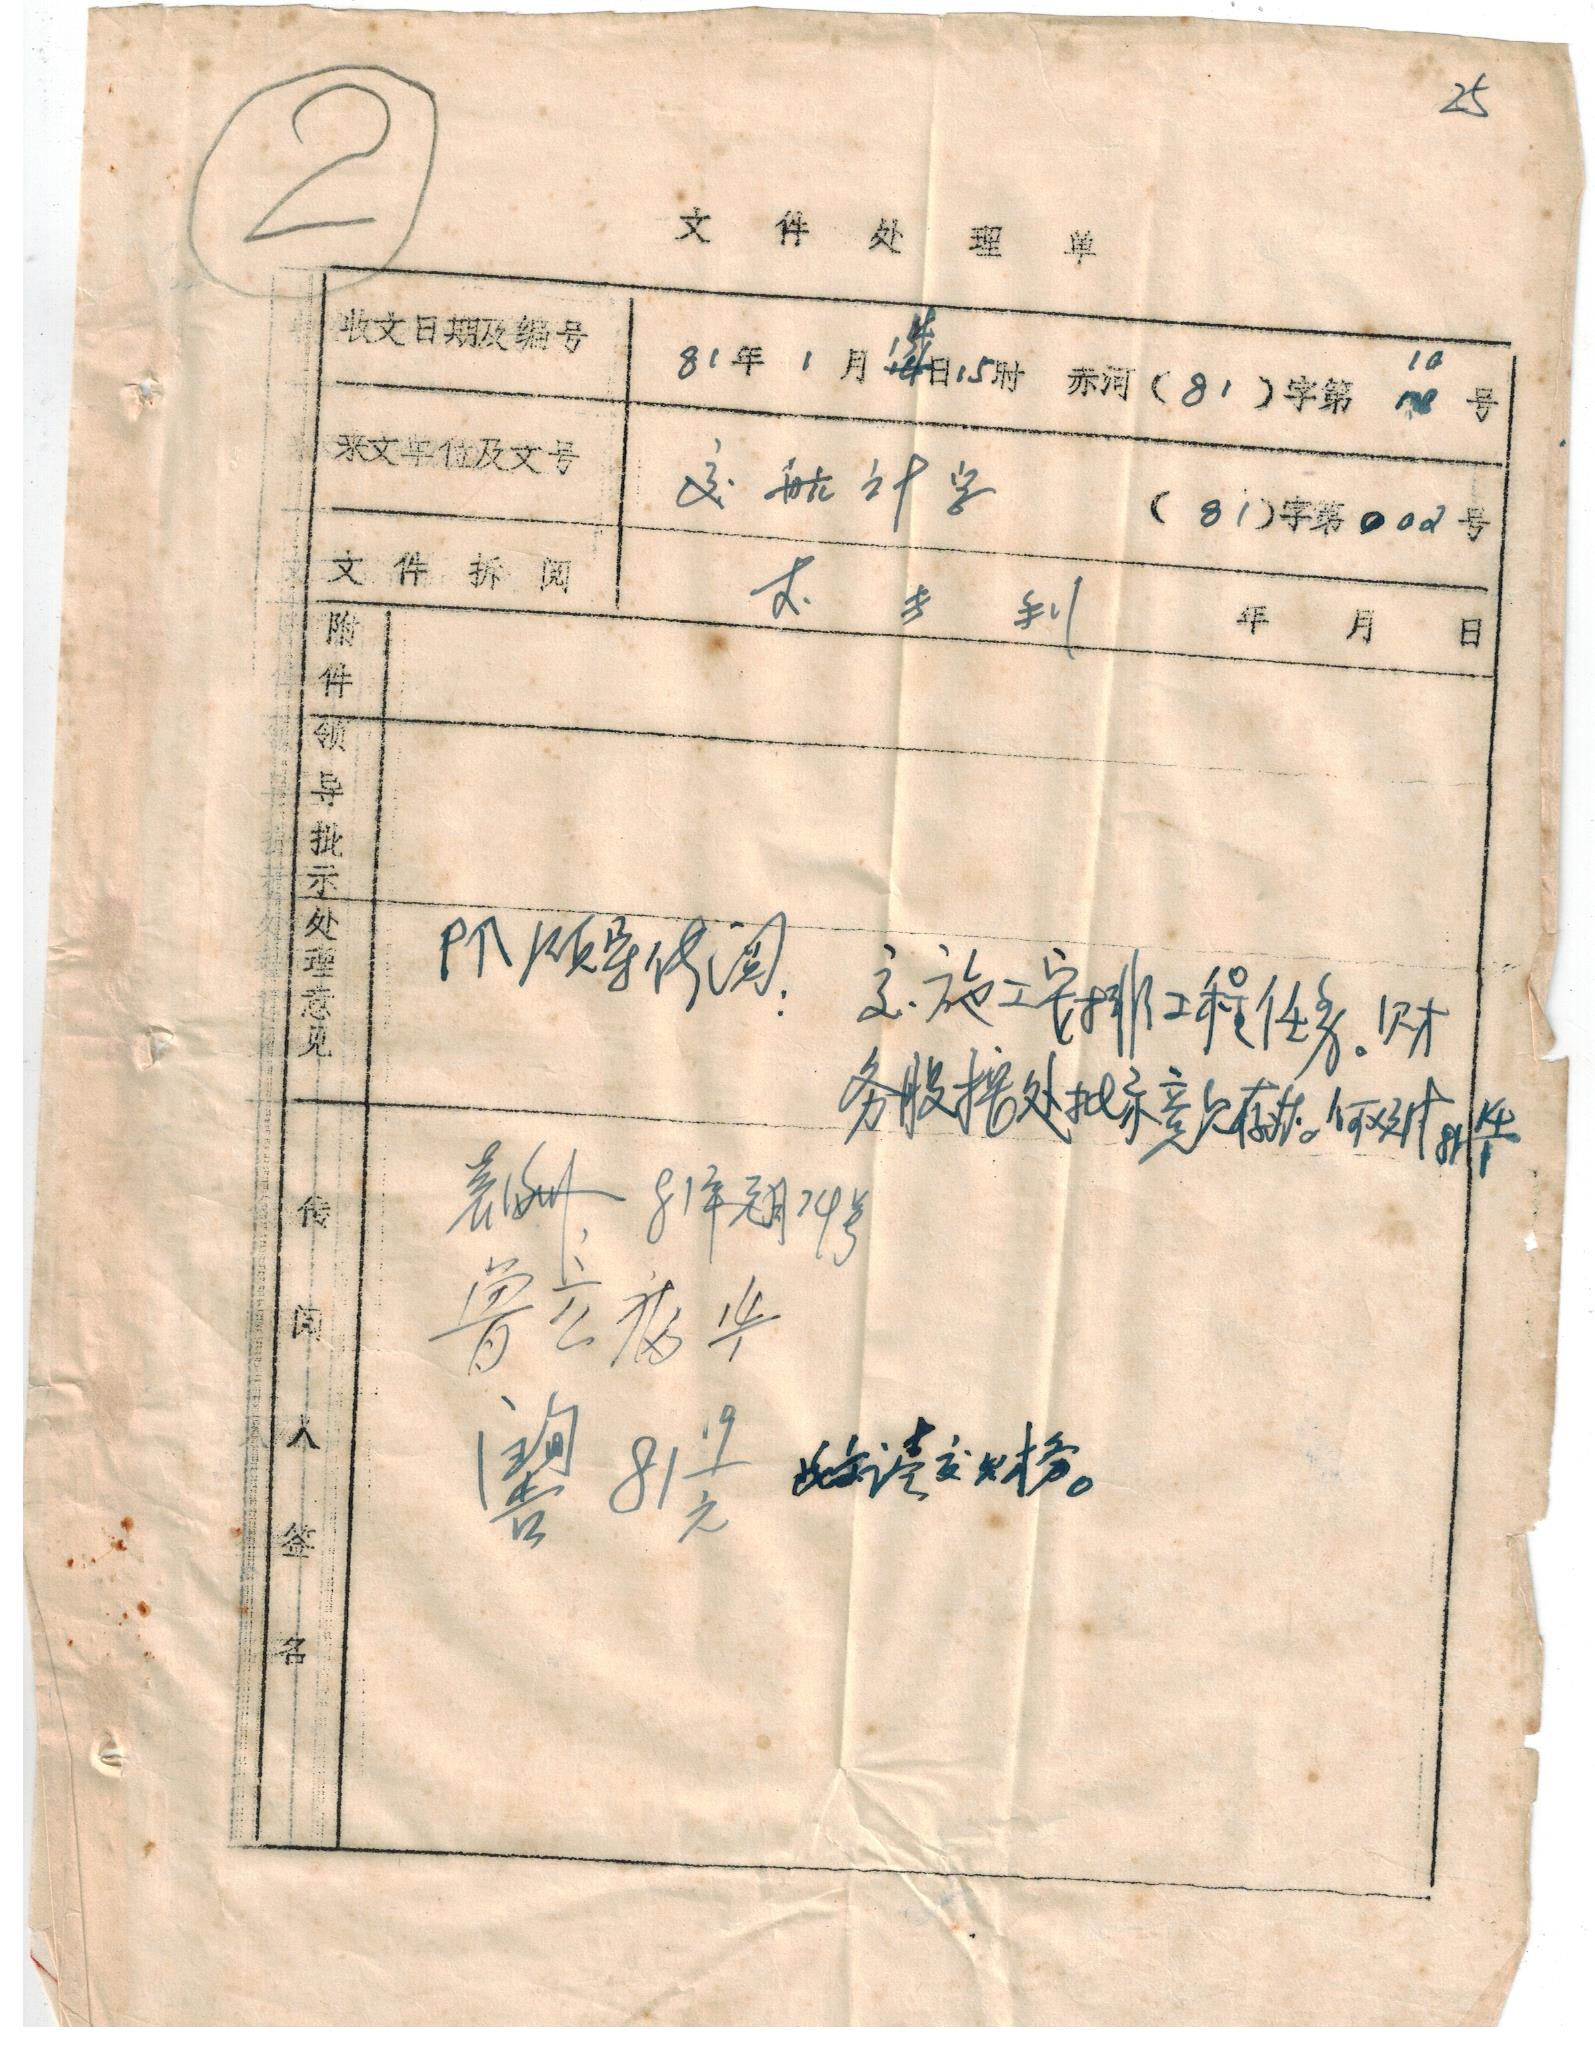 25
2
文件处理单
收文日期及编号 81年1月14日15时 赤河(81)字第10号
来文单位及文号 交航计字 (81)字第002号
文件拆阅 年月日
附件
领导批示处理意见
阶领导传阅. 交施工安排工程任务。财
务股按处批示意见存办。 81 14/1
传阅人签名
81年元月24号
曾云病 
81 19/元 此文请交财务。